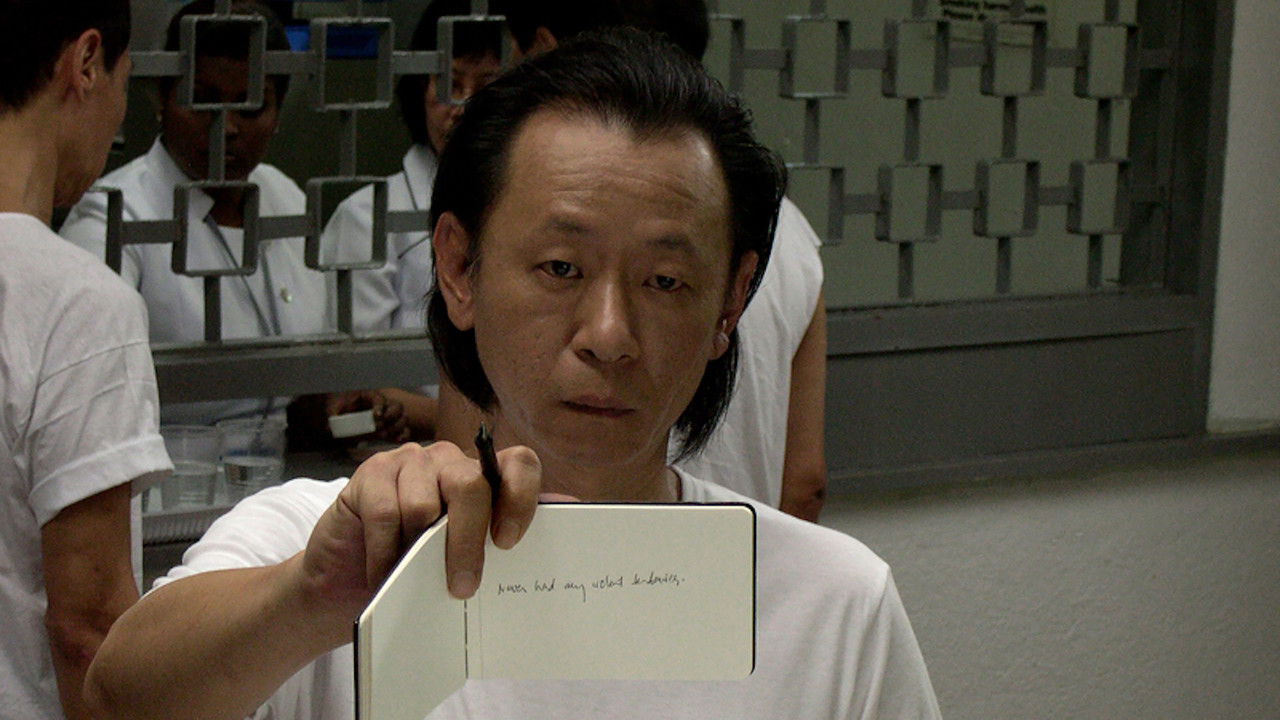 Never had any violent tendencies.